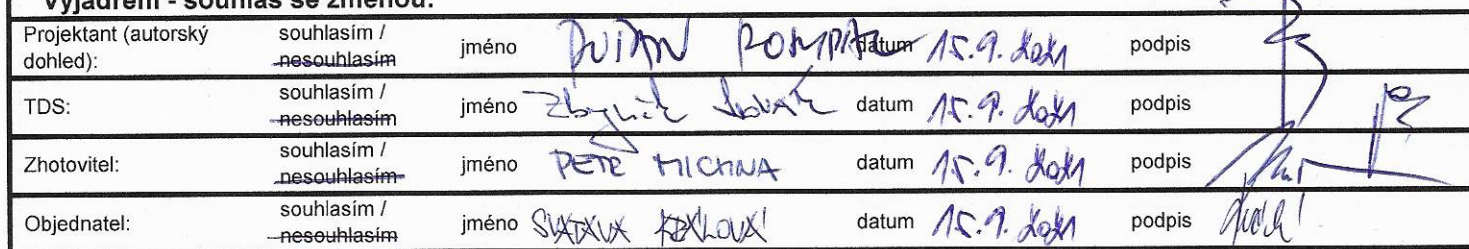 Vyjádření - souhlas se změnou:
Projektant (autorský dohled): souhlasím / nesouhlasím jméno datum 15.9.2021 podpis
TDS: souhlasím / nesouhlasím jméno Zbyněk datum 15.9.2021 podpis
Zhotovitel: souhlasím / nesouhlasím jméno PETR MICHNA datum 15.9.2021 podpis
Objednatel: souhlasím / nesouhlasím jméno SVATAVA datum 15.9.2021 podpis